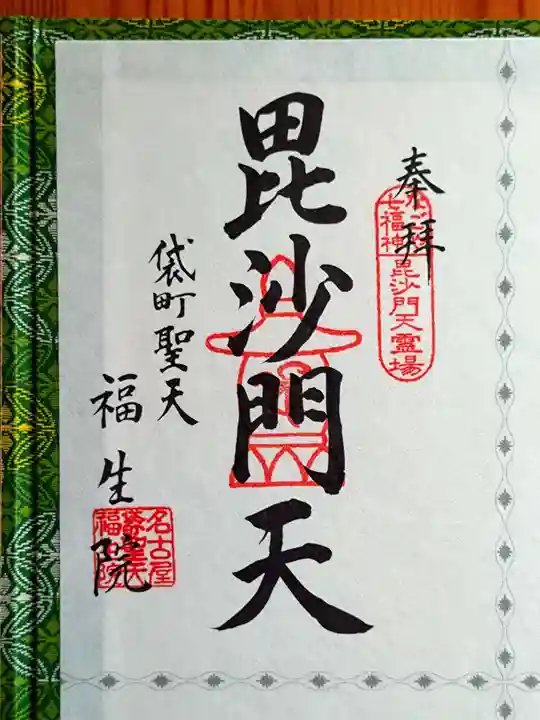 奉拝
七福神
毘沙門天霊場
毘沙門天
袋町聖天
福生院
名古屋
袋町聖天
福生院